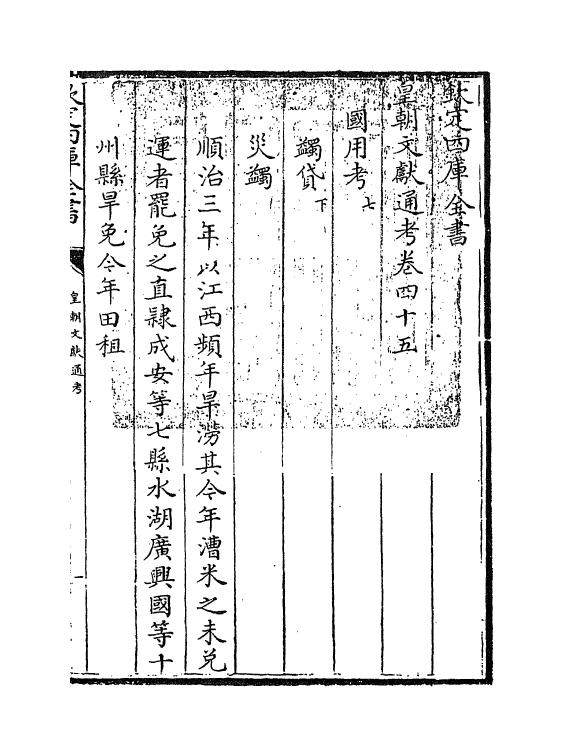 欽定四庫全書
皇朝文獻通考卷四十五
國用考七
蠲貸下
災蠲
順治三年以江西頻年旱澇其令年漕米之未兌
運者罷免之直隸成安等七縣水湖廣興國等十
州縣旱免今年田租
欽定四庫全書
皇朝文獻通考
一